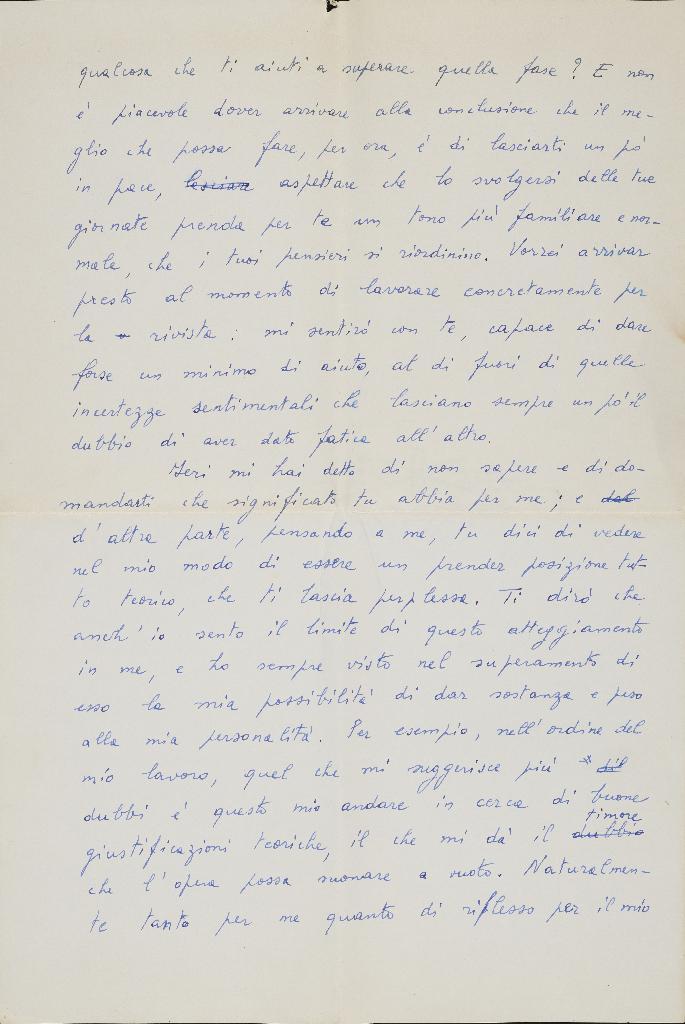 qualcosa che ti aiuti a superare quella fase? E non
è piacevole dover arrivare alla conclusione che il me-
glio che possa fare, per ora, è di lasciarti un pò
in pace, lasciare aspettare che lo svolgersi delle tue
giornate prenda per te un tono più familiare e nor-
male, che i tuoi pensieri si riordinino. Vorrei arrivar
presto al momento di lavorare concretamente per
la rivista: mi sentirò con te, capace di dare
forse un minimo di aiuto, al di fuori di quelle
incertezze sentimentali che lasciano sempre un po' il
dubbio di aver dato fatica all'altro.
Ieri mi hai detto di non sapere e di do-
mandarti che significato tu abbia per me; e dal
d'altra parte, pensando a me, tu dici di vedere
nel mio modo di essere un prender posizione tut-
to teorico, che ti lascia perplessa. Ti dirò che
anch'io sento il limite di questo atteggiamento
in me, e ho sempre visto nel superamento di
esso la mia possibilità di dar sostanza e peso
alla mia personalità. Per esempio, nell'ordine del
mio lavoro, quel che mi suggerisce più
dubbi è questo mio andare in cerca di buone
giustificazioni teoriche, il che mi dà il dubbio timore
che l'opera possa suonare a vuoto. Naturalmen-
te tanto per me quanto di riflesso per il mio